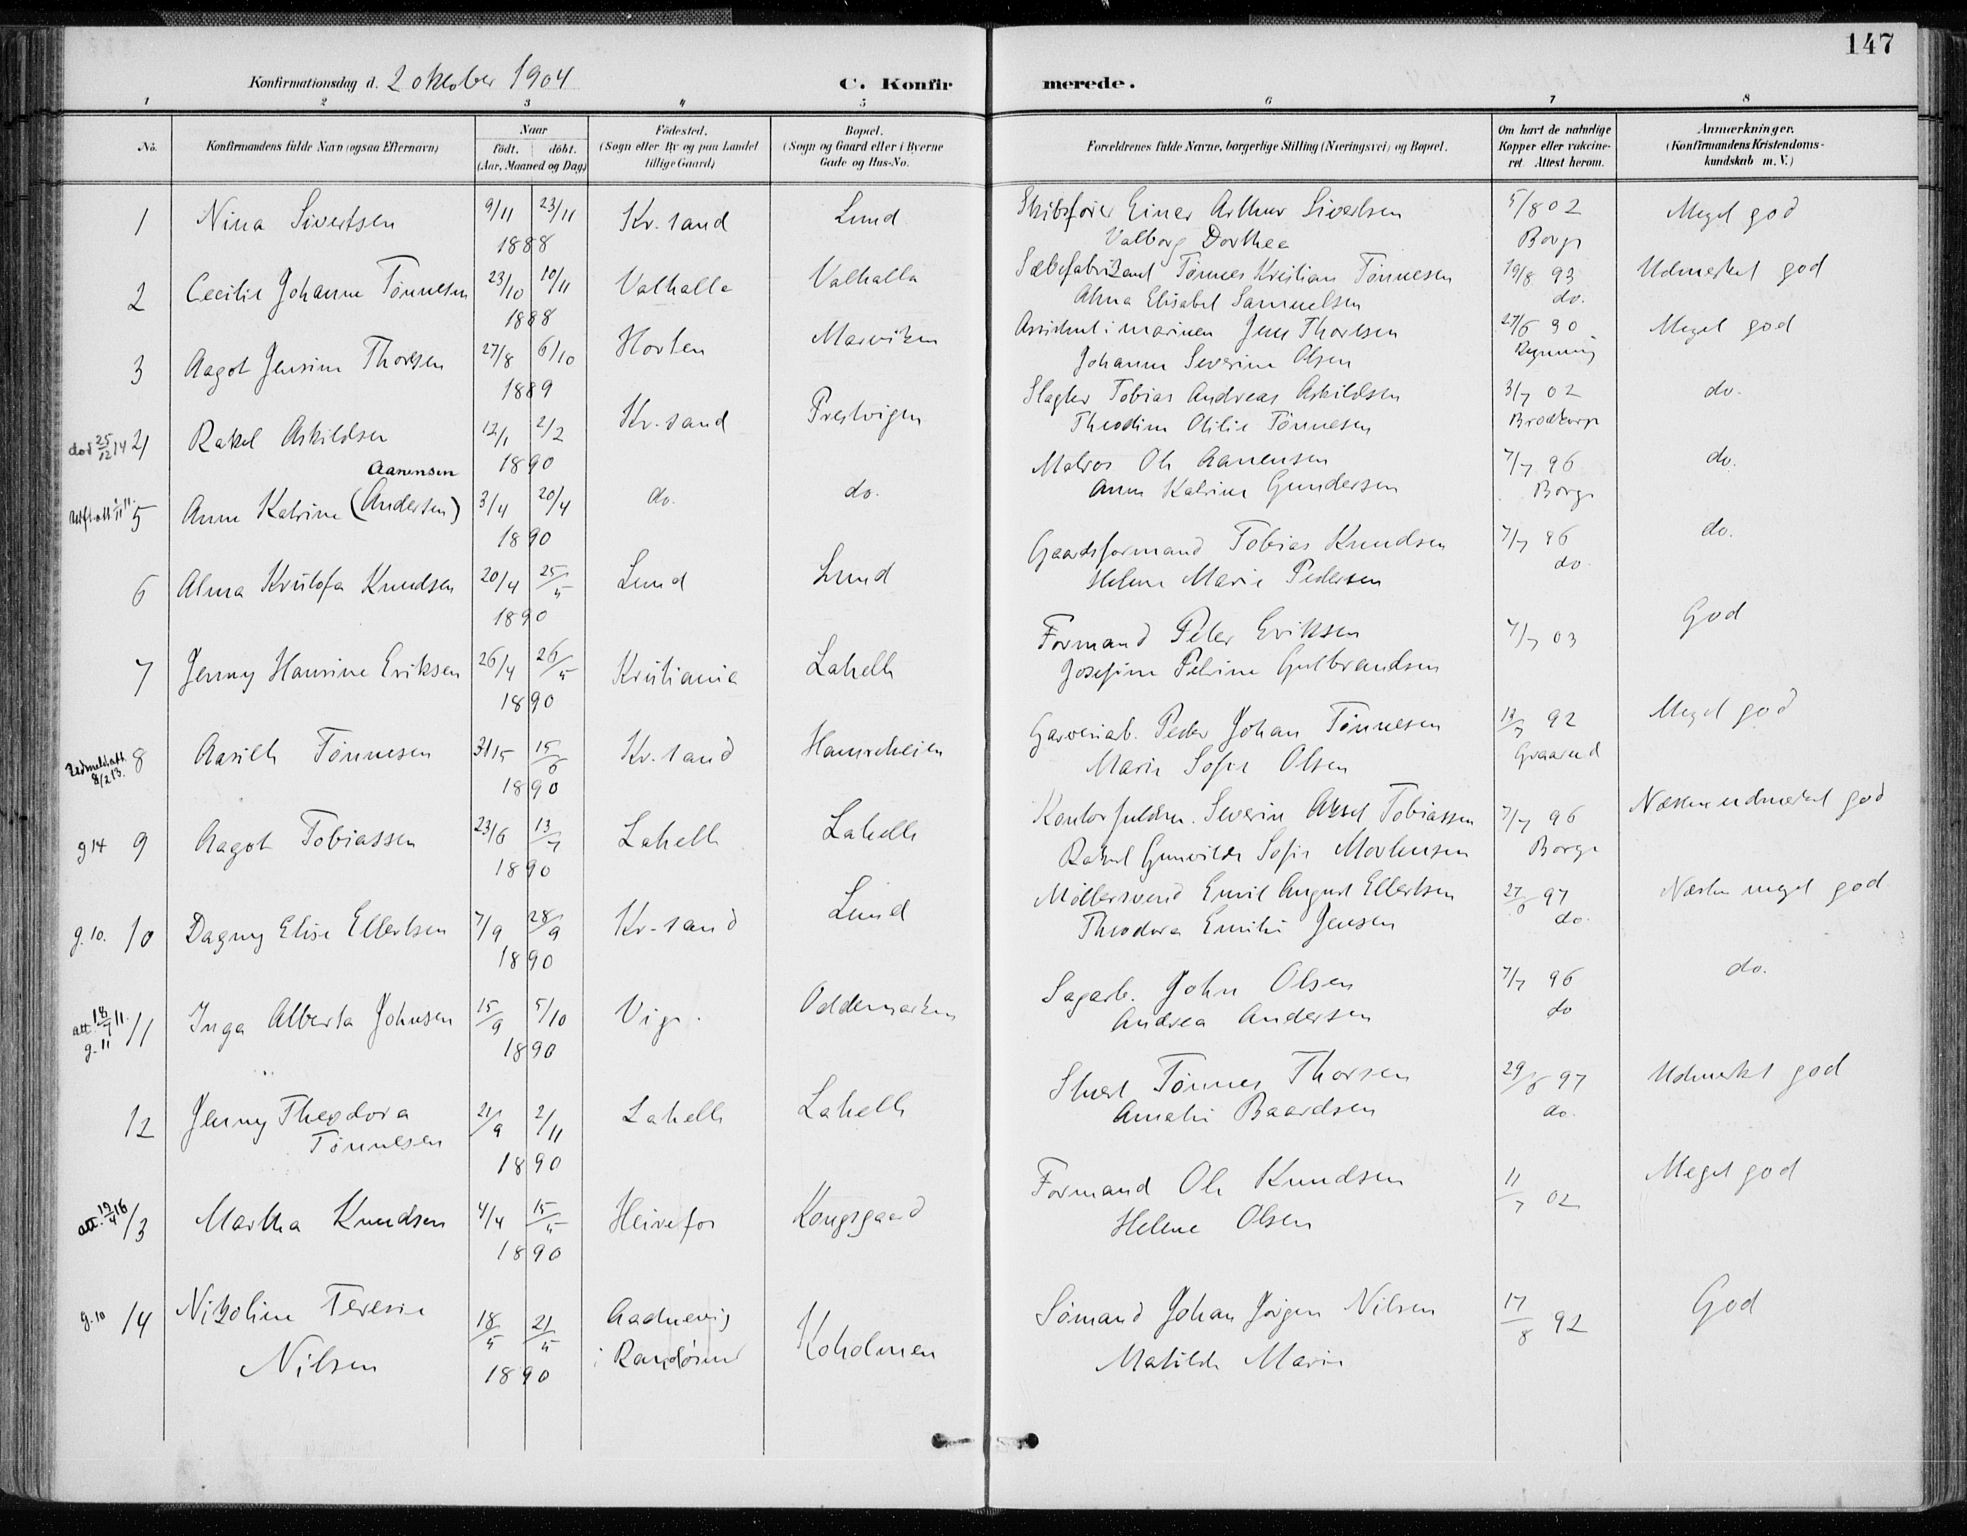 147
Konfirmationsdag d. 2 oktober 1904
C. Konfirmerede.
1 2 3 4 5 6 7 8
No.
Konfirmandens fulde Navn (ogsaa Efternavn)
Naar
født. døbt.
(Aar, Maaned og Dag)
Fødested.
(Sogn eller By og paa Landet
tillige Gaard)
Bopæl.
(Sogn og Gaard eller i Byerne
Gade og Hus-No.
Forældrenes fulde Navne, borgerlige Stilling (Næringsvei) og Bopæl.
Om havt de naturlige
Kopper eller vakcine-
ret. Attest herom.
Anmærkninger.
(Konfirmandens Kristendoms-
kundskab m. V.)
1 Nina Sivertsen 9/11 23/11 Kr.sand Lund Skibsfører Einer Arthur Sivertsen 5/8 02 Meget god
1888 Valborg Dorthea Borge
2 Cecilie Johanne Tønnesen 23/10 10/11 Valhalla Valhalla Sæbefabrikant Tønnes Kristian Tønnesen 19/8 93 Udmerket god
1888 Alma Elisabet Samuelsen do.
3 Aagot Jensine Thorsen 27/8 6/10 Horten Marviken Assistent i marinen Jens Thorsen 27/6 90 Meget god
1889 Johanne Severine Olsen
død 25/12 14 4 Rakel Askildsen 12/1 2/2 Kr.sand Prestvigen Slagter Tobias Andreas Askildsen 3/7 02 do.
1890 Theodine Otilie Tønnesen Brodkorp
Aanensen
5 Anne Katrine (Andersen) 3/4 20/4 do. do. Matros Ole Aanensen 7/7 96 do.
1890 Anne Katrine Gundersen Borge
6 Alma Kristofa Knudsen 20/4 25/5 Lund Lund Gaardsformand Tobias Knudsen 7/7 96 do.
1890 Helene Marie Pedersen do
7 Jenny Hansine Eriksen 26/4 26/5 Kristiania Lahelle Formand Peter Eriksen 7/7 03 God
1890 Josefine Petrine Gulbrandsen
Udmeld.att. 8/2 13. 8 Aasille Tønnesen 31/5 15/6 Kr.sand Hamreheien Garveriarb. Peder Johan Tønnesen 13/7 92 Meget god
1890 Marie Sofie Olsen Graarud
g 14 9 Aagot Tobiassen 23/6 13/7 Lahelle Lahelle Kontorfuldm. Severin Aksel Tobiassen 7/7 96 Næsten udmerket god
1890 Rakel Gunvilde Sofie Mortensen Borge
g. 10. 10 Dagny Elise Ellertsen 7/9 28/9 Kr.sand Lund Møllersvend Emil August Ellertsen 27/6 97 Næsten meget god
1890 Theodora Emilie Jensen do.
att. 18/7 11. g. 11 11 Inga Alberta Johnsen 15/9 5/10 Vige. Oddemarken Sagarb. John Olsen 7/7 96 do.
1890 Andrea Andersen do
12 Jenny Theodora 21/9 2/11 Lahelle Lahelle Stuert Tønnes Thorsen 29/6 97 Udmerket god
Tønnesen 1890 Amalie Baardsen do.
att. 19/4 16 13 Martha Knudsen 4/4 15/5 Heirefos Kongsgaard Formand Ole Knudsen 11/7 02 Meget god
1890 Helene Olsen
g. 10 14 Nikoline Teresie 18/5 21/5 Aadnevig Koholmen Sømand Johan Jørgen Nilsen 17/8 92 God
Nilsen 1890 i Randøsund Matilde Marie